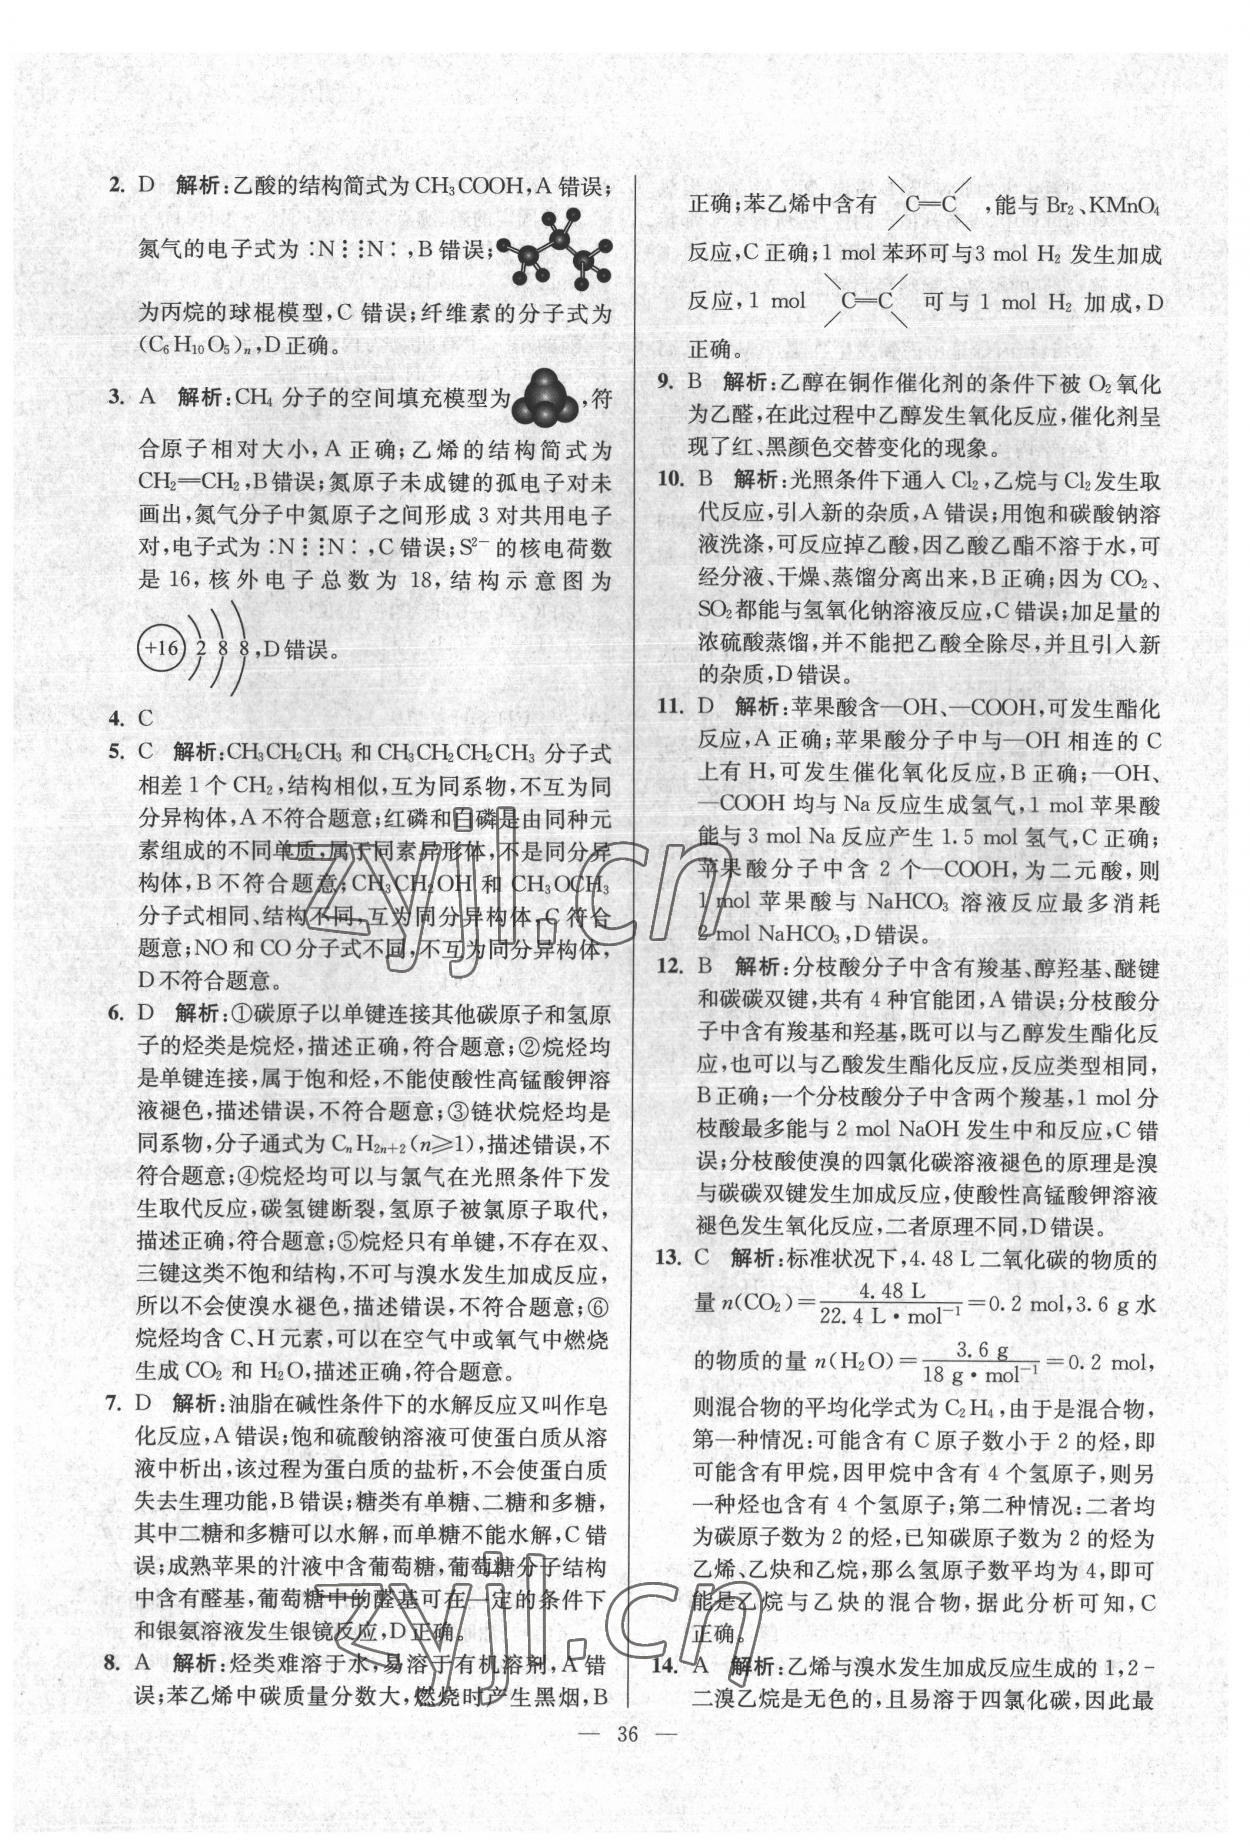 2. D 解析:乙酸的结构简式为 CH₃COOH,A 错误;
氮气的电子式为 :N⋮⋮N: ,B 错误;
为丙烷的球棍模型,C 错误;纤维素的分子式为
(C₆H₁₀O₅)ₙ,D 正确。
3. A 解析:CH₄ 分子的空间填充模型为 ,符
合原子相对大小,A 正确;乙烯的结构简式为
CH₂═CH₂,B 错误;氮原子未成键的孤电子对未
画出,氮气分子中氮原子之间形成 3 对共用电子
对,电子式为 :N⋮⋮N: ,C 错误;S²⁻ 的核电荷数
是 16,核外电子总数为 18,结构示意图为
+16 2 8 8 ,D 错误。
4. C
5. C 解析:CH₃CH₂CH₃ 和 CH₃CH₂CH₂CH₃ 分子式
相差 1 个 CH₂,结构相似,互为同系物,不互为同
分异构体,A 不符合题意;红磷和白磷是由同种元
素组成的不同单质,属于同素异形体,不是同分异
构体,B 不符合题意;CH₃CH₂OH 和 CH₃OCH₃
分子式相同、结构不同,互为同分异构体,C 符合
题意;NO 和 CO 分子式不同,不互为同分异构体,
D 不符合题意。
6. D 解析:①碳原子以单键连接其他碳原子和氢原
子的烃类是烷烃,描述正确,符合题意;②烷烃均
是单键连接,属于饱和烃,不能使酸性高锰酸钾溶
液褪色,描述错误,不符合题意;③链状烷烃均是
同系物,分子通式为 CₙH₂ₙ₊₂(n≥1),描述错误,不
符合题意;④烷烃均可以与氯气在光照条件下发
生取代反应,碳氢键断裂,氢原子被氯原子取代,
描述正确,符合题意;⑤烷烃只有单键,不存在双、
三键这类不饱和结构,不可与溴水发生加成反应,
所以不会使溴水褪色,描述错误,不符合题意;⑥
烷烃均含 C、H 元素,可以在空气中或氧气中燃烧
生成 CO₂ 和 H₂O,描述正确,符合题意。
7. D 解析:油脂在碱性条件下的水解反应又叫作皂
化反应,A 错误;饱和硫酸钠溶液可使蛋白质从溶
液中析出,该过程为蛋白质的盐析,不会使蛋白质
失去生理功能,B 错误;糖类有单糖、二糖和多糖,
其中二糖和多糖可以水解,而单糖不能水解,C 错
误;成熟苹果的汁液中含葡萄糖,葡萄糖分子结构
中含有醛基,葡萄糖中的醛基可在一定的条件下
和银氨溶液发生银镜反应,D 正确。
8. A 解析:烃类难溶于水,易溶于有机溶剂,A 错
误;苯乙烯中碳质量分数大,燃烧时产生黑烟,B
正确;苯乙烯中含有 C═C ,能与 Br₂、KMnO₄
反应,C 正确;1 mol 苯环可与 3 mol H₂ 发生加成
反应,1 mol C═C 可与 1 mol H₂ 加成,D
正确。
9. B 解析:乙醇在铜作催化剂的条件下被 O₂ 氧化
为乙醛,在此过程中乙醇发生氧化反应,催化剂呈
现了红、黑颜色交替变化的现象。
10. B 解析:光照条件下通入 Cl₂,乙烷与 Cl₂ 发生取
代反应,引入新的杂质,A 错误;用饱和碳酸钠溶
液洗涤,可反应掉乙酸,因乙酸乙酯不溶于水,可
经分液、干燥、蒸馏分离出来,B 正确;因为 CO₂、
SO₂ 都能与氢氧化钠溶液反应,C 错误;加足量的
浓硫酸蒸馏,并不能把乙酸全除尽,并且引入新
的杂质,D 错误。
11. D 解析:苹果酸含—OH、—COOH,可发生酯化
反应,A 正确;苹果酸分子中与—OH 相连的 C
上有 H,可发生催化氧化反应,B 正确;—OH、
—COOH 均与 Na 反应生成氢气,1 mol 苹果酸
能与 3 mol Na 反应产生 1.5 mol 氢气,C 正确;
苹果酸分子中含 2 个—COOH,为二元酸,则
1 mol 苹果酸与 NaHCO₃ 溶液反应最多消耗
2 mol NaHCO₃,D 错误。
12. B 解析:分枝酸分子中含有羧基、醇羟基、醚键
和碳碳双键,共有 4 种官能团,A 错误;分枝酸分
子中含有羧基和羟基,既可以与乙醇发生酯化反
应,也可以与乙酸发生酯化反应,反应类型相同,
B 正确;一个分枝酸分子中含两个羧基,1 mol 分
枝酸最多能与 2 mol NaOH 发生中和反应,C 错
误;分枝酸使溴的四氯化碳溶液褪色的原理是溴
与碳碳双键发生加成反应,使酸性高锰酸钾溶液
褪色发生氧化反应,二者原理不同,D 错误。
13. C 解析:标准状况下,4.48 L 二氧化碳的物质的
量 n(CO₂)=4.48 L/22.4 L·mol⁻¹=0.2 mol,3.6 g 水
的物质的量 n(H₂O)=3.6 g/18 g·mol⁻¹=0.2 mol,
则混合物的平均化学式为 C₂H₄,由于是混合物,
第一种情况:可能含有 C 原子数小于 2 的烃,即
可能含有甲烷,因甲烷中含有 4 个氢原子,则另
一种烃也含有 4 个氢原子;第二种情况:二者均
为碳原子数为 2 的烃,已知碳原子数为 2 的烃为
乙烯、乙炔和乙烷,那么氢原子数平均为 4,即可
能是乙烷与乙炔的混合物,据此分析可知,C
正确。
14. A 解析:乙烯与溴水发生加成反应生成的 1,2-
二溴乙烷是无色的,且易溶于四氯化碳,因此最
— 36 —
zyjl.cn
zyjl.cn